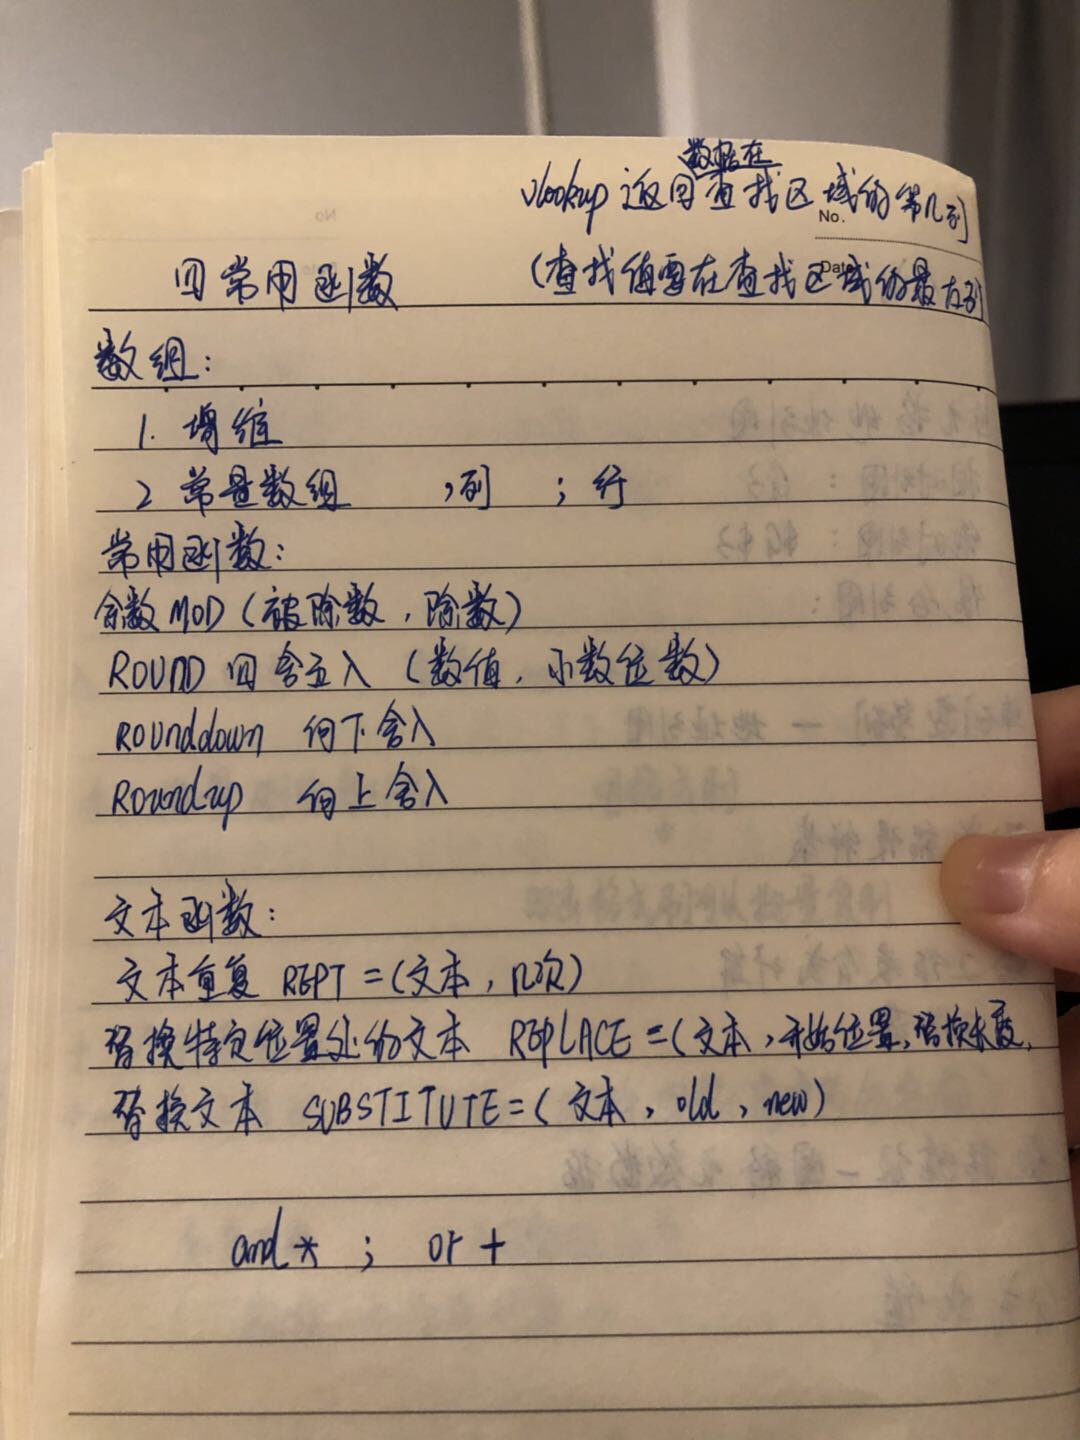 数据在
vlookup 返回查找区域的第几列
No.
Date
四 常用函数 (查找值要在查找区域的最左列
数组：
1. 增维
2 常量数组 ,列 ; 行
常用函数：
余数 MOD (被除数 , 除数)
ROUND 四舍五入 (数值 , 小数位数)
ROUnddown 向下舍入
Roundup 向上舍入
文本函数：
文本重复 REPT =(文本 , 几次)
替换特定位置处的文本 REPLACE =(文本 , 开始位置, 替换长度,
替换文本 SUBSTITUTE =( 文本 , old , new)
and * ; or +